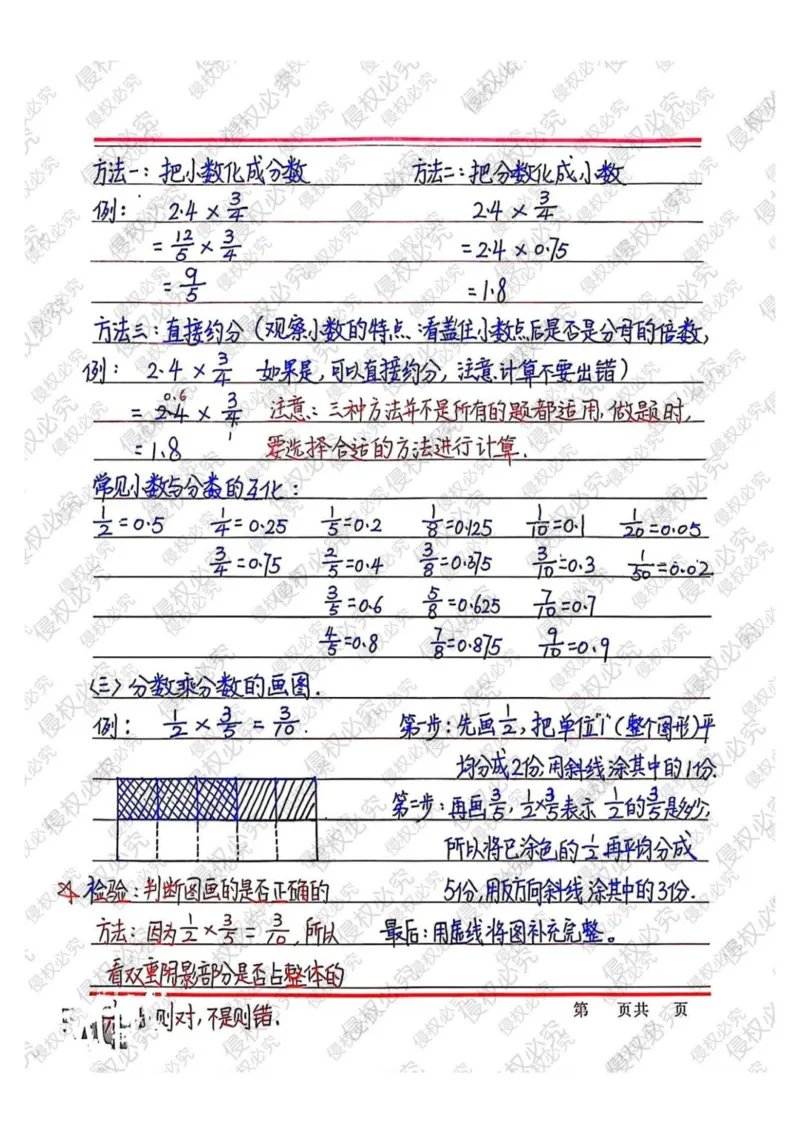 方法一：把小数化成分数　　方法二：把分数化成小数
例：2.4 × 3/4　　2.4 × 3/4
= 12/5 × 3/4　　= 2.4 × 0.75
= 9/5　　= 1.8
方法三：直接约分（观察小数的特点：看盖住小数点后是否是分母的倍数，
例：2.4 × 3/4　如果是，可以直接约分，注意：计算不要出错）
0.6
= 2.4 × 3/4　注意：三种方法并不是所有的题都适用，做题时，
1
= 1.8　要选择合适的方法进行计算．
常见小数与分数的互化：
1/2=0.5　1/4=0.25　1/5=0.2　1/8=0.125　1/10=0.1　1/20=0.05
3/4=0.75　2/5=0.4　3/8=0.375　3/10=0.3　1/50=0.02
3/5=0.6　5/8=0.625　7/10=0.7
4/5=0.8　7/8=0.875　9/10=0.9
〈三〉分数乘分数的画图．
例：1/2 × 3/5 = 3/10．　第一步：先画1/2，把单位"1"（整个图形）平
均分成2份，用斜线涂其中的1份．
第二步：再画3/5，1/2×3/5表示1/2的3/5是多少，
所以将已涂色的1/2再平均分成
5份，用反方向斜线涂其中的3份．
最后：用虚线将图补充完整。
检验：判断图画的是否正确的
方法：因为1/2×3/5=3/10，所以
看双重阴影部分是否占整体的
则对，不是则错．
第　页共　页
侵权必究